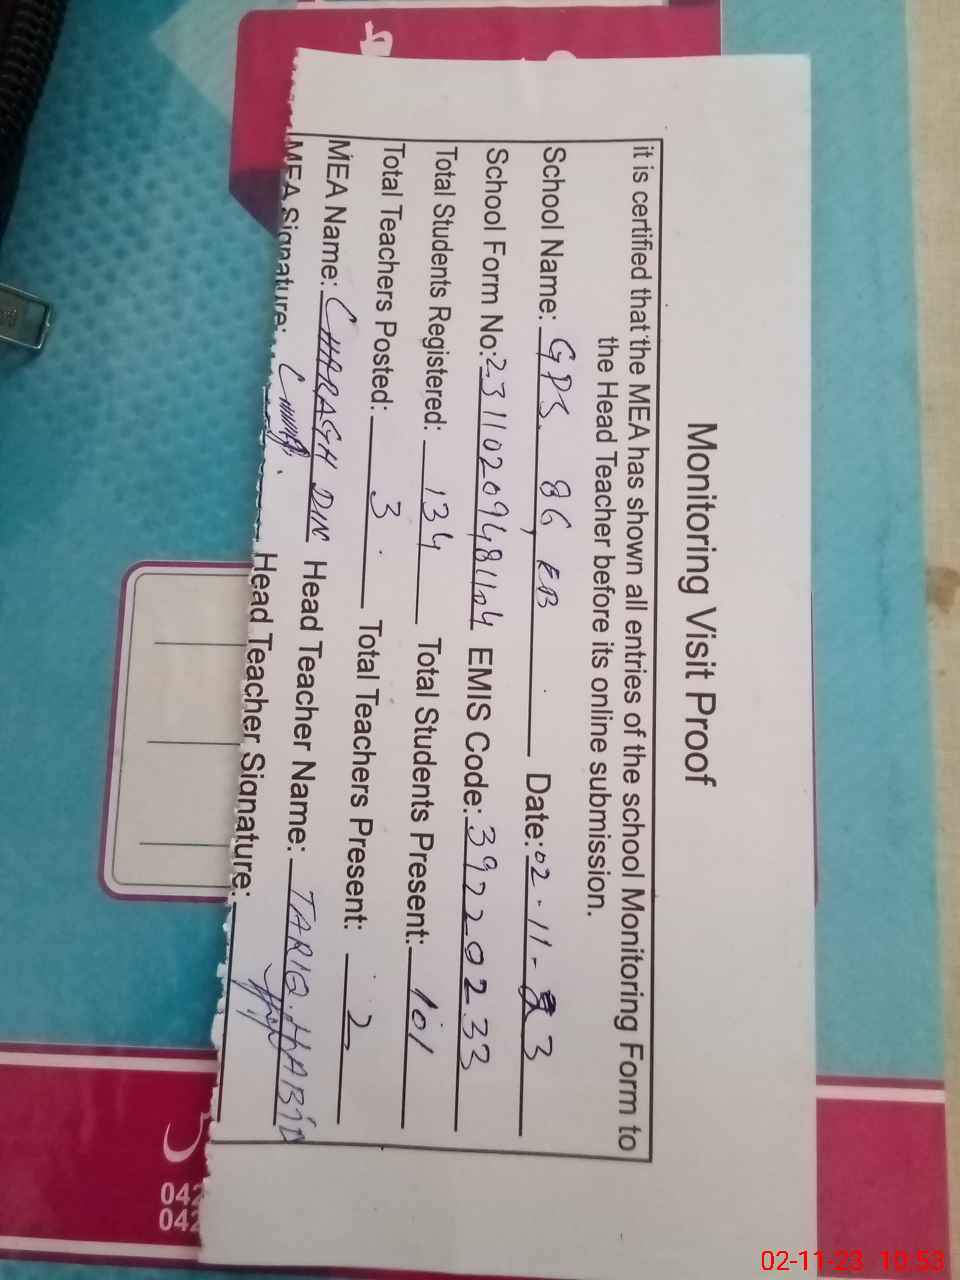 Monitoring Visit Proof
it is certified that the MEA has shown all entries of the school Monitoring Form to
the Head Teacher before its online submission.
School Name: GPS. 86, EB Date: 02-11-23
School Form No: 23110209481124 EMIS Code: 39220233
Total Students Registered: 134 Total Students Present: 101
Total Teachers Posted: 3 Total Teachers Present: 2
MEA Name: CHARAGH DIN Head Teacher Name: TARIQ. HABIB
MEA Signature: Head Teacher Signature:
5
042
042
02-11-23 10:53